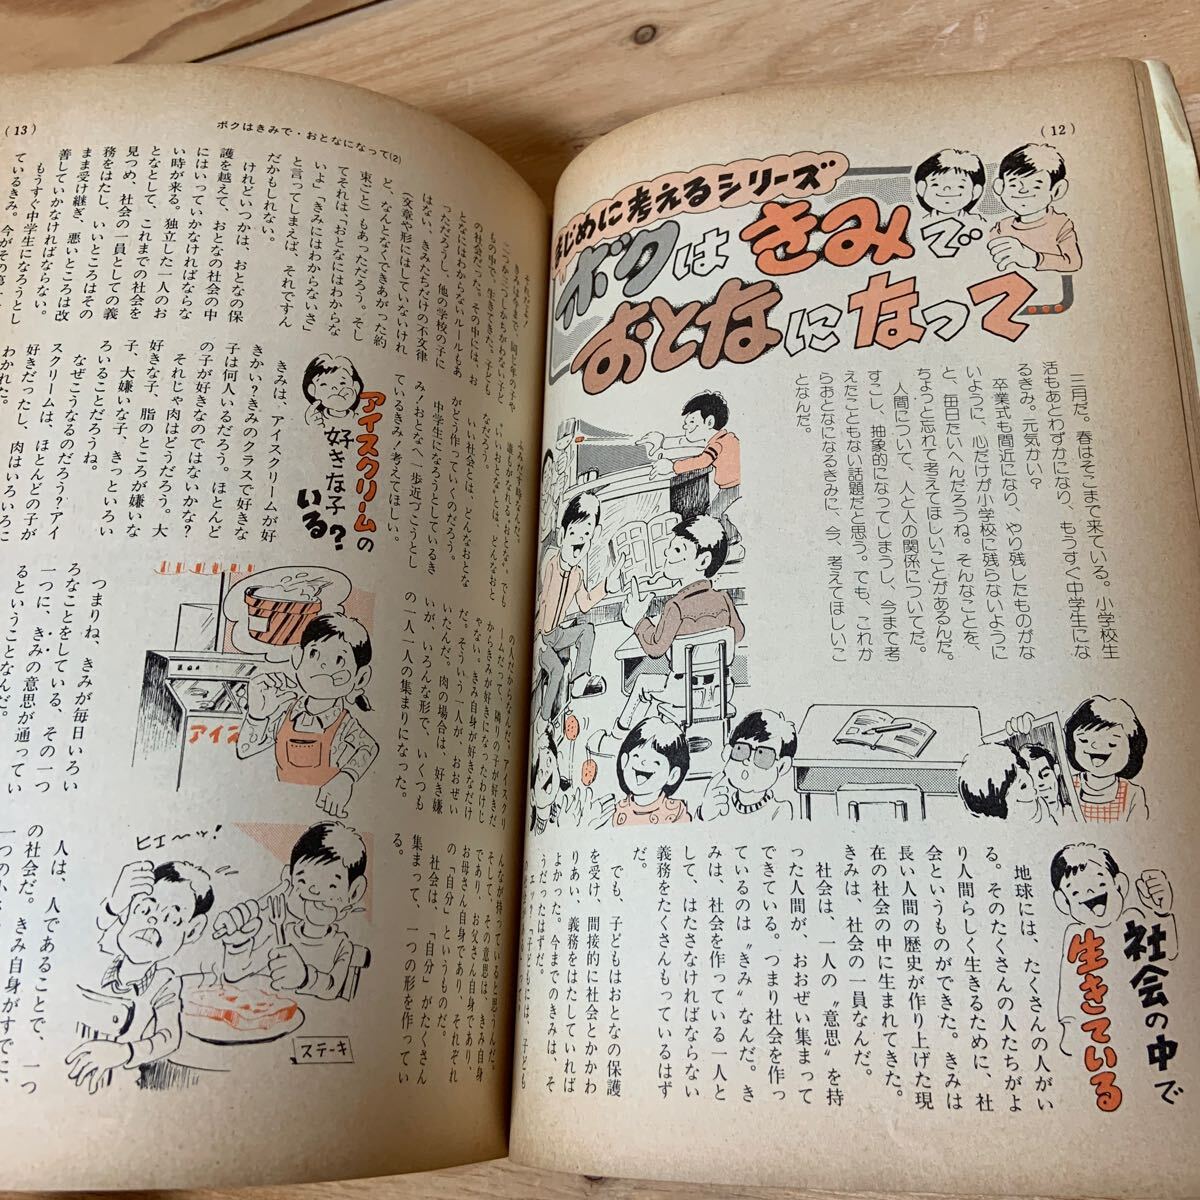 (12)
まじめに考えるシリーズ
ボクはきみで
おとなになって…
三月だ。春はそこまで来ている。小学校生
活もあとわずかになり、もうすぐ中学生にな
るきみ。元気かい?
卒業式も間近になり、やり残したものがな
いように、心だけが小学校に残らないように
と、毎日たいへんだろうね。そんなことを、
ちょっと忘れて考えてほしいことがあるんだ。
人間について、人と人の関係についてだ。
すこし、抽象的になってしまうし、今まで考
えたこともない話題だと思う。でも、これか
らおとなになるきみに、今、考えてほしいこ
となんだ。
社会の中で
生きている
地球には、たくさんの人がい
る。そのたくさんの人たちがよ
り人間らしく生きるために、社
会というものができた。きみは
長い人間の歴史が作り上げた現
在の社会の中に生まれてきた。
きみは、社会の一員なんだ。
社会は、一人の〝意思〟を持
った人間が、おおぜい集まって
できている。つまり社会を作っ
ているのは〝きみ〟なんだ。き
みは、社会を作っている一人と
して、はたさなければならない
義務をたくさんもっているはず
だ。
でも、子どもはおとなの保護
を受け、間接的に社会とかかわ
りあい、義務をはたしていれば
よかった。今までのきみは、そ
うだったはずだ。
(13)
ボクはきみで・おとなになって(2)
それだよ!
きみは今まで、同じ年の子や
の社会だった。その中には、お
となにはわからないルールもあ
っただろうし、他の学校の子に
はない、きみたちだけの不文律
(文章や形にはしていないけれ
ど、なんとなくできあがった約
束ごと)もあっただろう。そし
てそれは、「おとなにはわからな
いよ」「きみにはわからないさ」
と言ってしまえば、それですん
だかもしれない。
けれどいつかは、おとなの保
護を越えて、おとなの社会の中
にはいっていかなければならな
い時が来る。独立した一人のお
となとして、これまでの社会を
見つめ、社会の一員としての義
務をはたし、いいところはその
まま受け継ぎ、悪いところは改
善していかなければならない。
もうすぐ中学生になろうとし
ているきみ。今がその第一
ふみだす時なんだ。
誰もがなれる、おとな。でも
〝いいおとな〟とは、どんなおと
なだろう。
いい社会とは、どんなおとな
がどう作っていくのだろう。
中学生になろうとしているき
み!おとなへ一歩近づこうとし
ているきみ!考えてほしい。
アイスクリームの
好きな子
いる?
きみは、アイスクリームが好
きかい?きみのクラスで好きな
子は何人いるだろう。ほとんど
の子が好きなのではないかな?
それじゃ肉はどうだろう。大
好きな子、脂のところが嫌いな
子、大嫌いな子、きっといろい
ろいることだろうね。
なぜこうなるのだろう?アイ
スクリームは、ほとんどの子が
好きだったし、肉はいろいろに
わかれた。
の人だからなんだ。アイスクリ
ームだって、隣りの子が好きだ
からきみが好きになったわけじ
ゃない。きみ自身が好きなだけ
だ。そういう一人が、おおぜい
いたんだ。肉の場合は、好き嫌
いが、いろんな形で、いくつも
の一人一人の集まりになった。
つまりね、きみが毎日いろい
ろなことをしている、その一つ
一つに、きみの意思が通ってい
るということなんだ。
んなが持っていると思うんだ。
そして、その意思は、きみ自身
であり、お父さん自身であり、
お母さん自身であり、それぞれ
の「自分」というものだ。
社会は、「自分」がたくさん
集まって、一つの形を作ってい
る。
人は、人であることで、一つ
の社会だ。きみ自身がすでに、
アイス
ヒエ〜ッ!
ステーキ